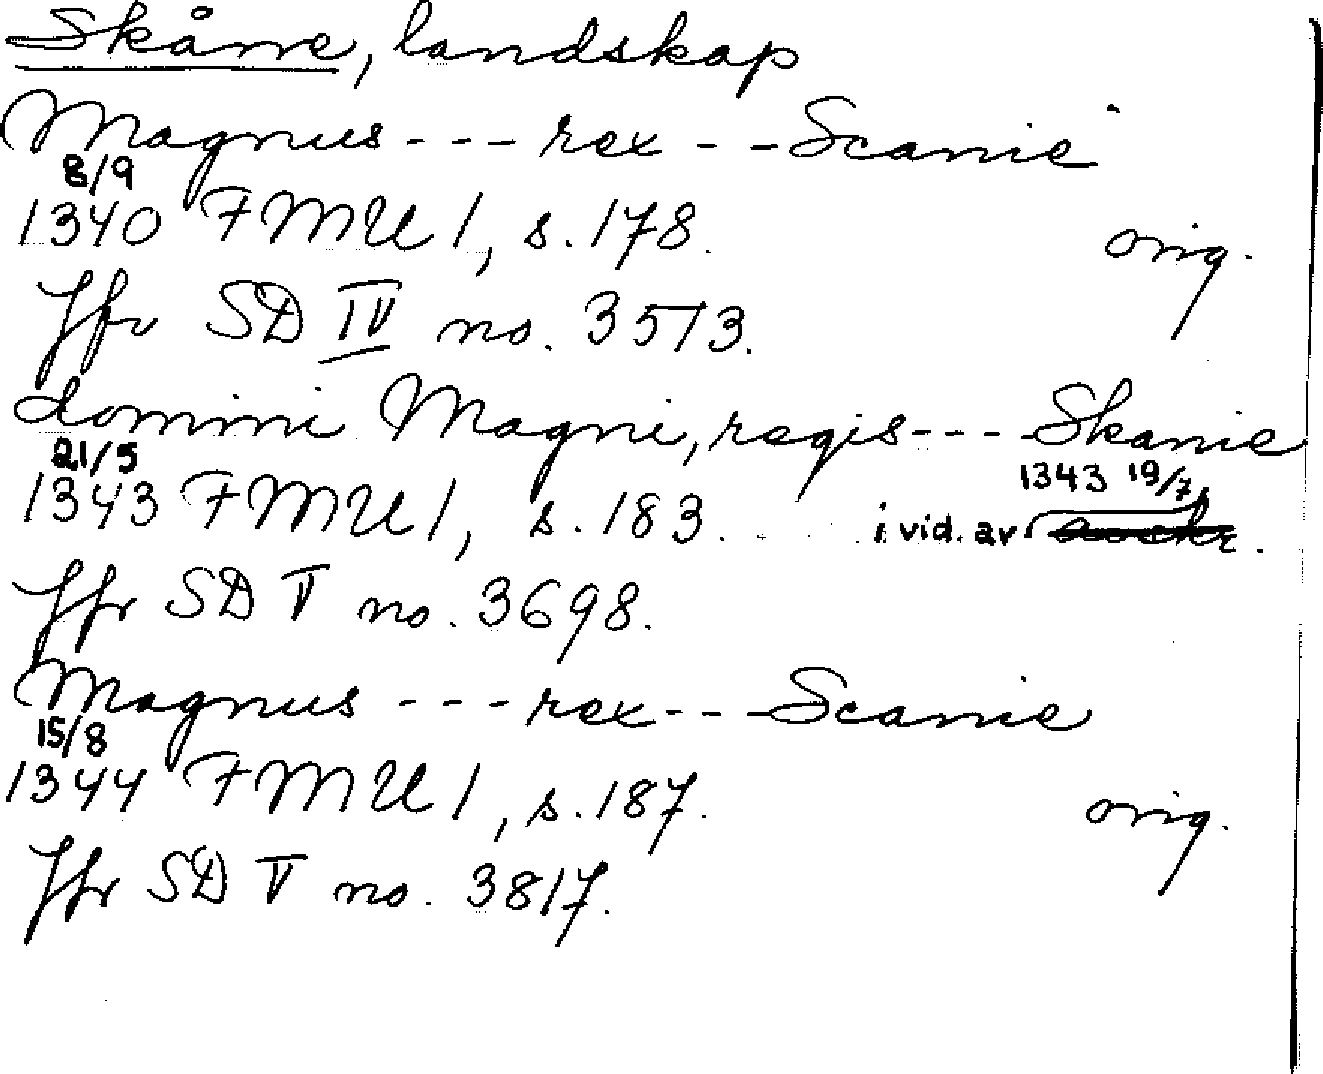 Skåne, landskap
Magnus - - - rex - - Scanie
8/9
1340 FMU 1, s. 178. orig.
Jfr SD IV no. 3513.
domini Magni, regis - - - Skanie
21/5 1343 19/7
1343 FMU 1, s. 183. i vid. av
Jfr SD V no. 3698.
Magnus - - - rex - - - Scanie
15/8
1344 FMU 1, s. 187. orig.
Jfr SD V no. 3817.